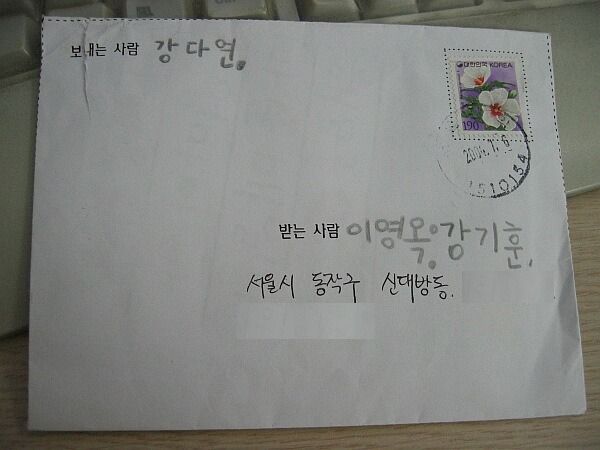 보내는 사람 강다연.
대한민국 KOREA
190
1510134
받는 사람 이영옥, 강기훈.
서울시 동작구 신대방동.